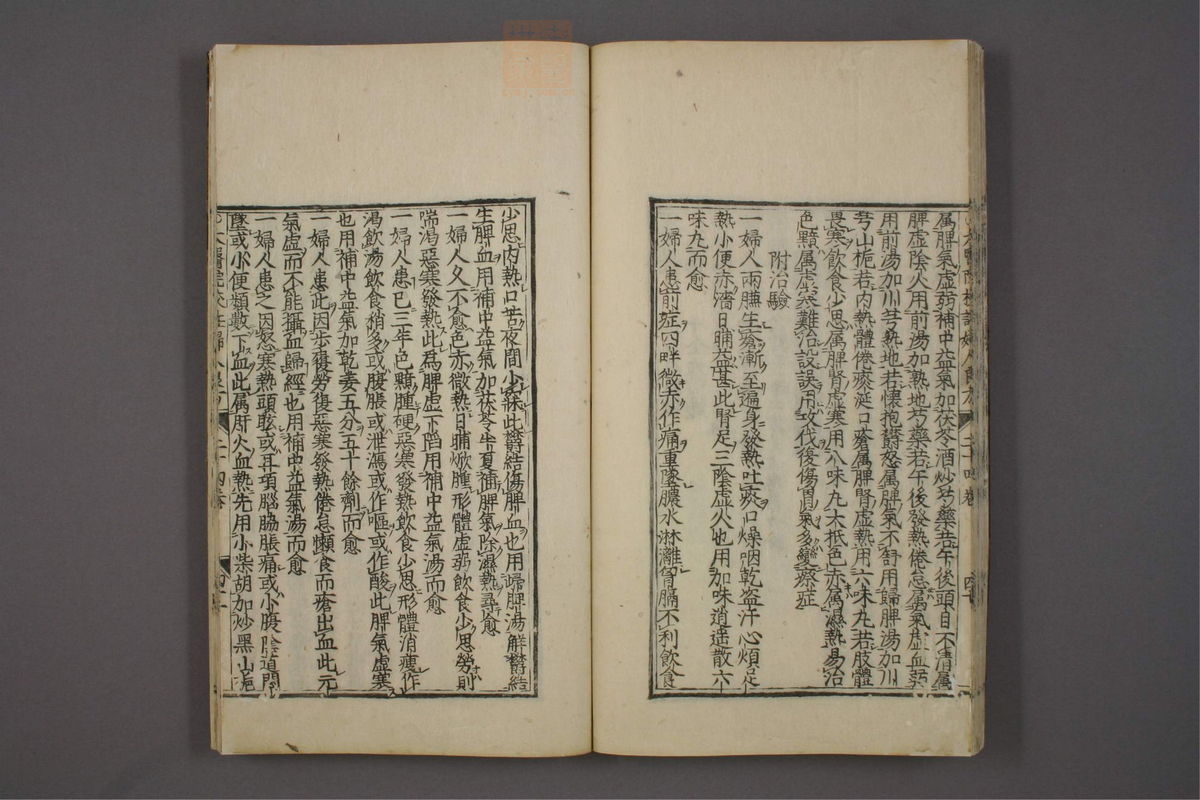 太醫院校註婦人良方 二十四卷
属脾氣虛弱補中益氣加茯苓酒炒芍藥若午後頭目不清属
脾虛陰火用前湯加熟地芍藥若午後發熱倦怠属氣虛血弱
用前湯加川芎熟地若懷抱欝怒属脾氣不舒用歸脾湯加川
芎山栀若内熱體倦痰涎口瘡属脾腎虛熱用六味丸若肢體
畏寒飲食少思属脾腎虛寒用八味丸大抵色赤属濕熱易治
色黯属虛寒難治設誤用攻伐復傷胃氣多變瘵症
附治驗
一婦人兩臁生瘡漸至遍身發熱吐痰口燥咽乾盗汗心煩足
熱小便赤濇日晡益甚此腎足三陰虛火也用加味逍遥散六
味丸而愈
一婦人患前症四畔微赤作痛重墜膿水淋漓胷膈不利飲食
少思内熱口苦夜間少寐此欝結傷脾血也用歸脾湯解欝結
生脾血用補中益氣加茯苓半夏補脾氣除濕熱尋愈
一婦人久不愈色赤微熱日晡焮腫形體虛弱飲食少思勞則
喘渴惡寒發熱此為脾虛下陷用補中益氣湯而愈
一婦人患已三年色黯腫硬惡寒發熱飲食少思形體消瘦作
渴飲湯飲食稍多或腹脹或泄瀉或作嘔或作酸此脾氣虛寒
也用補中益氣加乾姜五分五十餘劑而愈
一婦人患此因步履勞復惡寒發熱倦怠懶食而瘡出血此元
氣虛而不能攝血歸經也用補中益氣湯而愈
一婦人患之因怒寒熱頭眩或耳項腦脇脹痛或小腹陰道悶
墜或小便頻數下血此属肝火血熱先用小柴胡加炒黑山栀
太醫院校註婦人良方 二十四卷